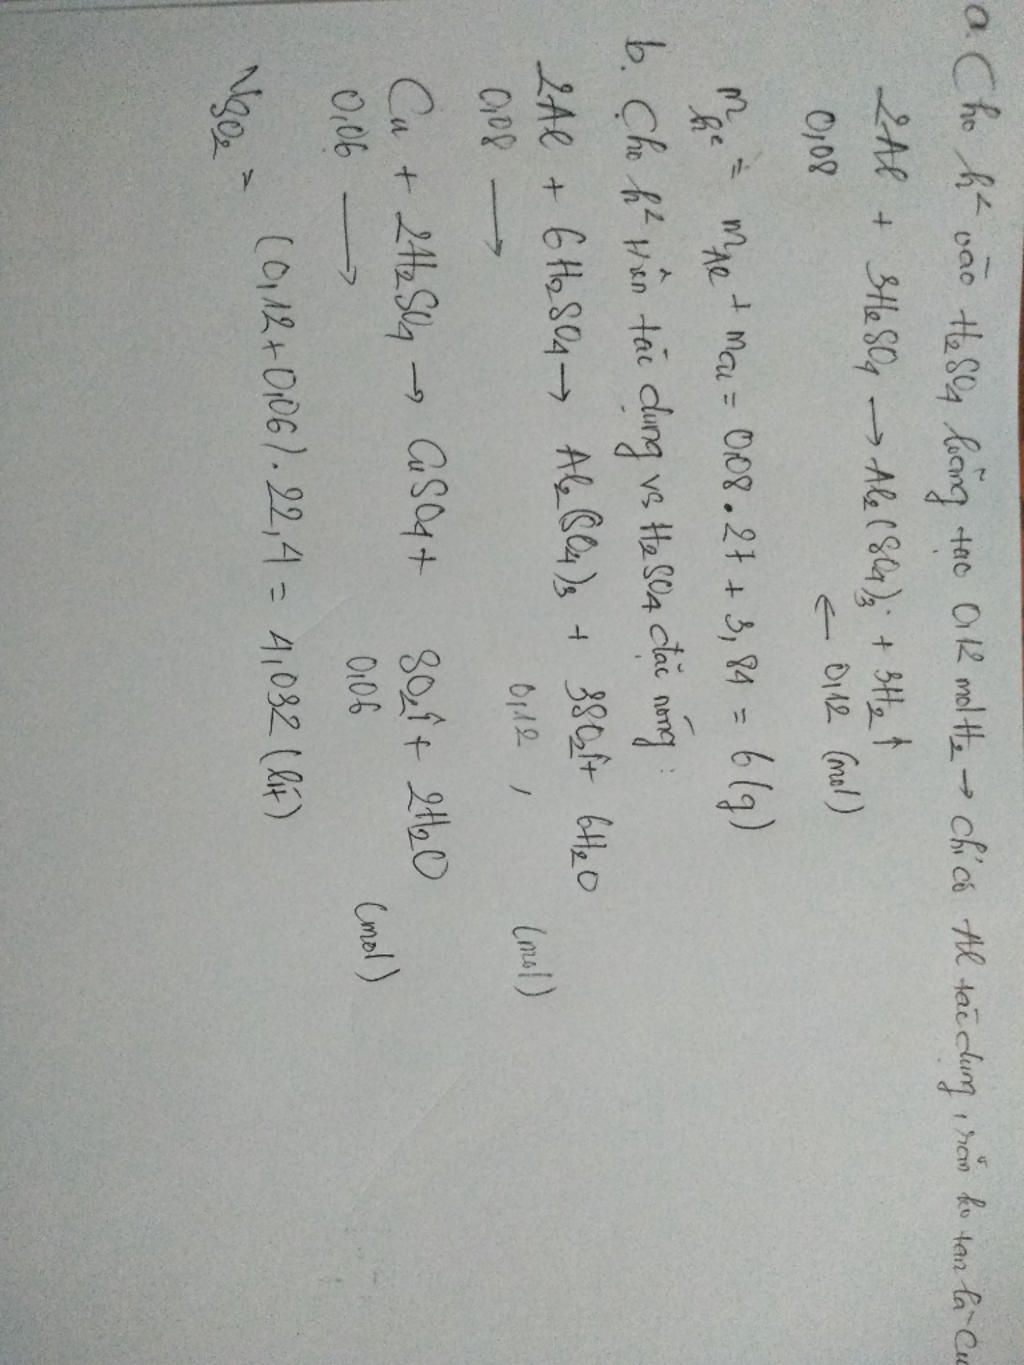 a. Cho h² vào H₂SO₄ loãng tạo 0,12 mol H₂ → chỉ có Al tác dụng, rắn ko tan là Cu
2Al + 3H₂SO₄ → Al₂(SO₄)₃ + 3H₂↑
0,08 ← 0,12 (mol)
m h² = mAl + mCu = 0,08 . 27 + 3,84 = 6 (g)
b. Cho h² trên tác dụng vs H₂SO₄ đặc nóng:
2Al + 6H₂SO₄ → Al₂(SO₄)₃ + 3SO₂↑ + 6H₂O
0,08 → 0,12 , (mol)
Cu + 2H₂SO₄ → CuSO₄ + SO₂↑ + 2H₂O
0,06 → 0,06 (mol)
VSO₂ = (0,12 + 0,06) . 22,4 = 4,032 (lít)